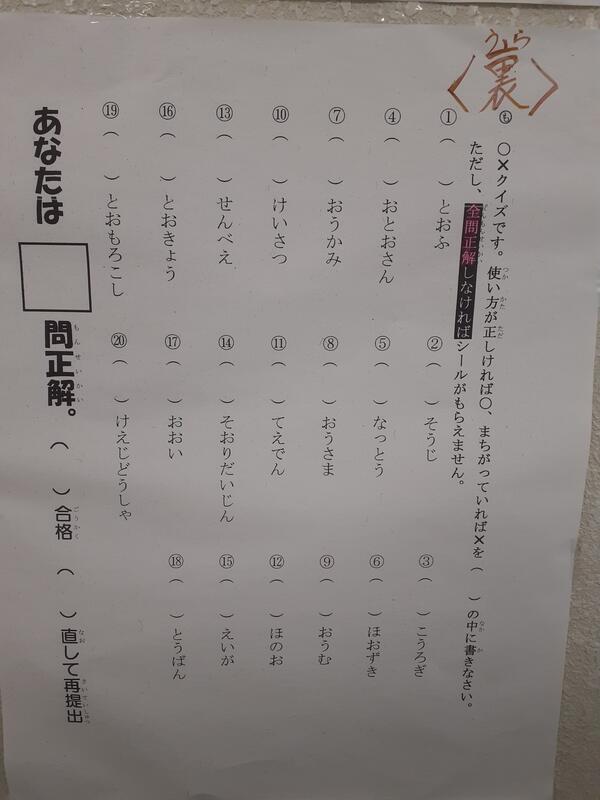 うら
〈裏〉
つか かた ただ なか か
も ○×クイズです。使い方が正しければ○、まちがっていれば×を（　）の中に書きなさい。
ただし、全問正解しなければシールがもらえません。
①（　）とおふ
②（　）そうじ
③（　）こうろぎ
④（　）おとおさん
⑤（　）なっとう
⑥（　）ほおずき
⑦（　）おうかみ
⑧（　）おうさま
⑨（　）おうむ
⑩（　）けいさつ
⑪（　）てえでん
⑫（　）ほのお
⑬（　）せんべえ
⑭（　）そおりだいじん
⑮（　）えいが
⑯（　）とおきょう
⑰（　）おおい
⑱（　）とうばん
⑲（　）とおもろこし
⑳（　）けえじどうしゃ
もんせいかい ごうかく なお さいていしゅつ
あなたは□問正解。（　）合格（　）直して再提出